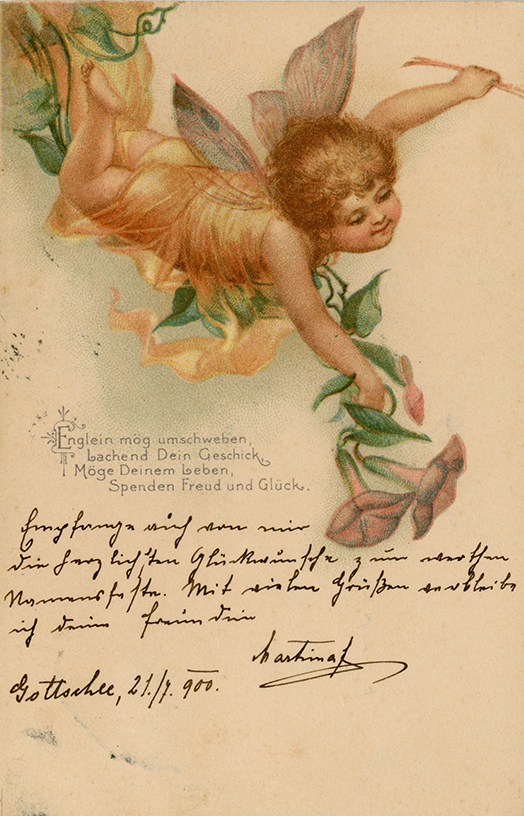 Englein mög umschweben,
Lachend Dein Geschick,
Möge Deinem Leben,
Spenden Freud und Glück.
Empfange auch von mir
die herzlichsten Glückwünsche zum werthen
Namensfeste. Mit vielen Grüßen verbleibe
ich deine Freundin
Martina
Gottschee, 21./7. 900.